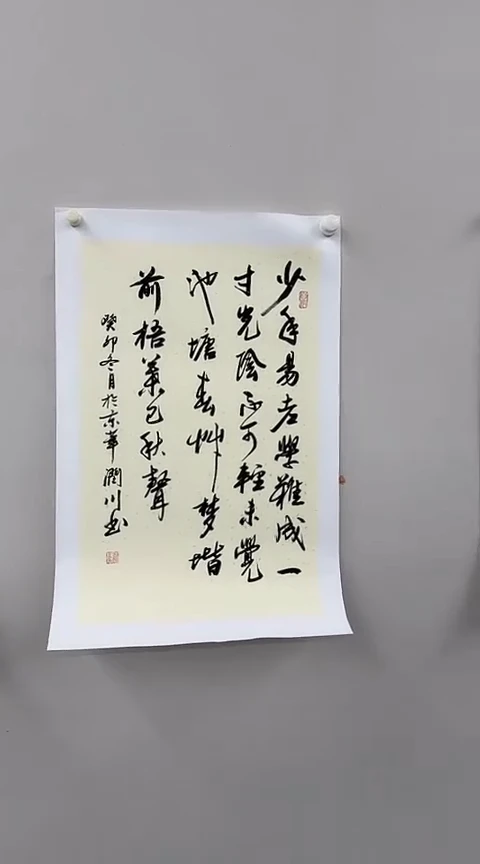 少年易老學難成一
寸光陰不可輕未覺
池塘春艸梦堦
前梧葉已秋聲
癸卯冬月於京華潤川书